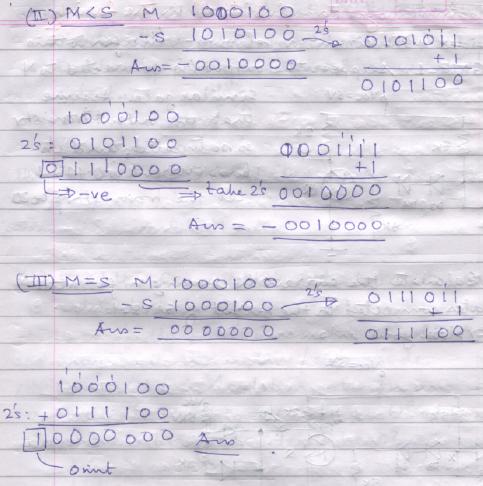 (II) M<S M 1000100
- S 1010100 2's → 0101011
+1
Ans = -0010000 0101100
1000100
2's = 0101100 0001111
0 1110000 +1
⇒ -ve ⇒ take 2's 0010000
Ans = - 0010000
(III) M=S M 1000100
- S 1000100 2's → 0111011
+ 1
Ans = 0000000 0111100
1000100
2's: +0111100
1 0000000 Ans